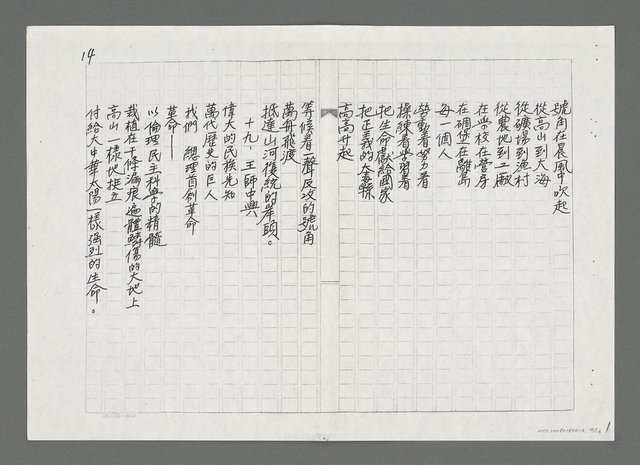 14
號角在晨風中吹起
從高山到大海
從礦場到漁村
從農地到工廠
在學校在營房
在碉堡在離島
每一個人
勞動着努力着
操練着學習着
把生命獻給國家
把正義的大纛
高高升起
等候着一聲反攻的號角
萬舟飛渡
抵達山河復統的岸頭。
十九、王師中興
偉大的民族先知
萬代歷史的巨人
我們 總理首創革命
革命——
以倫理民主科學的精髓
栽植在千條淚痕遍體鱗傷的大地上
高山一樣地挺立
付給大中華太陽一樣強烈的生命。